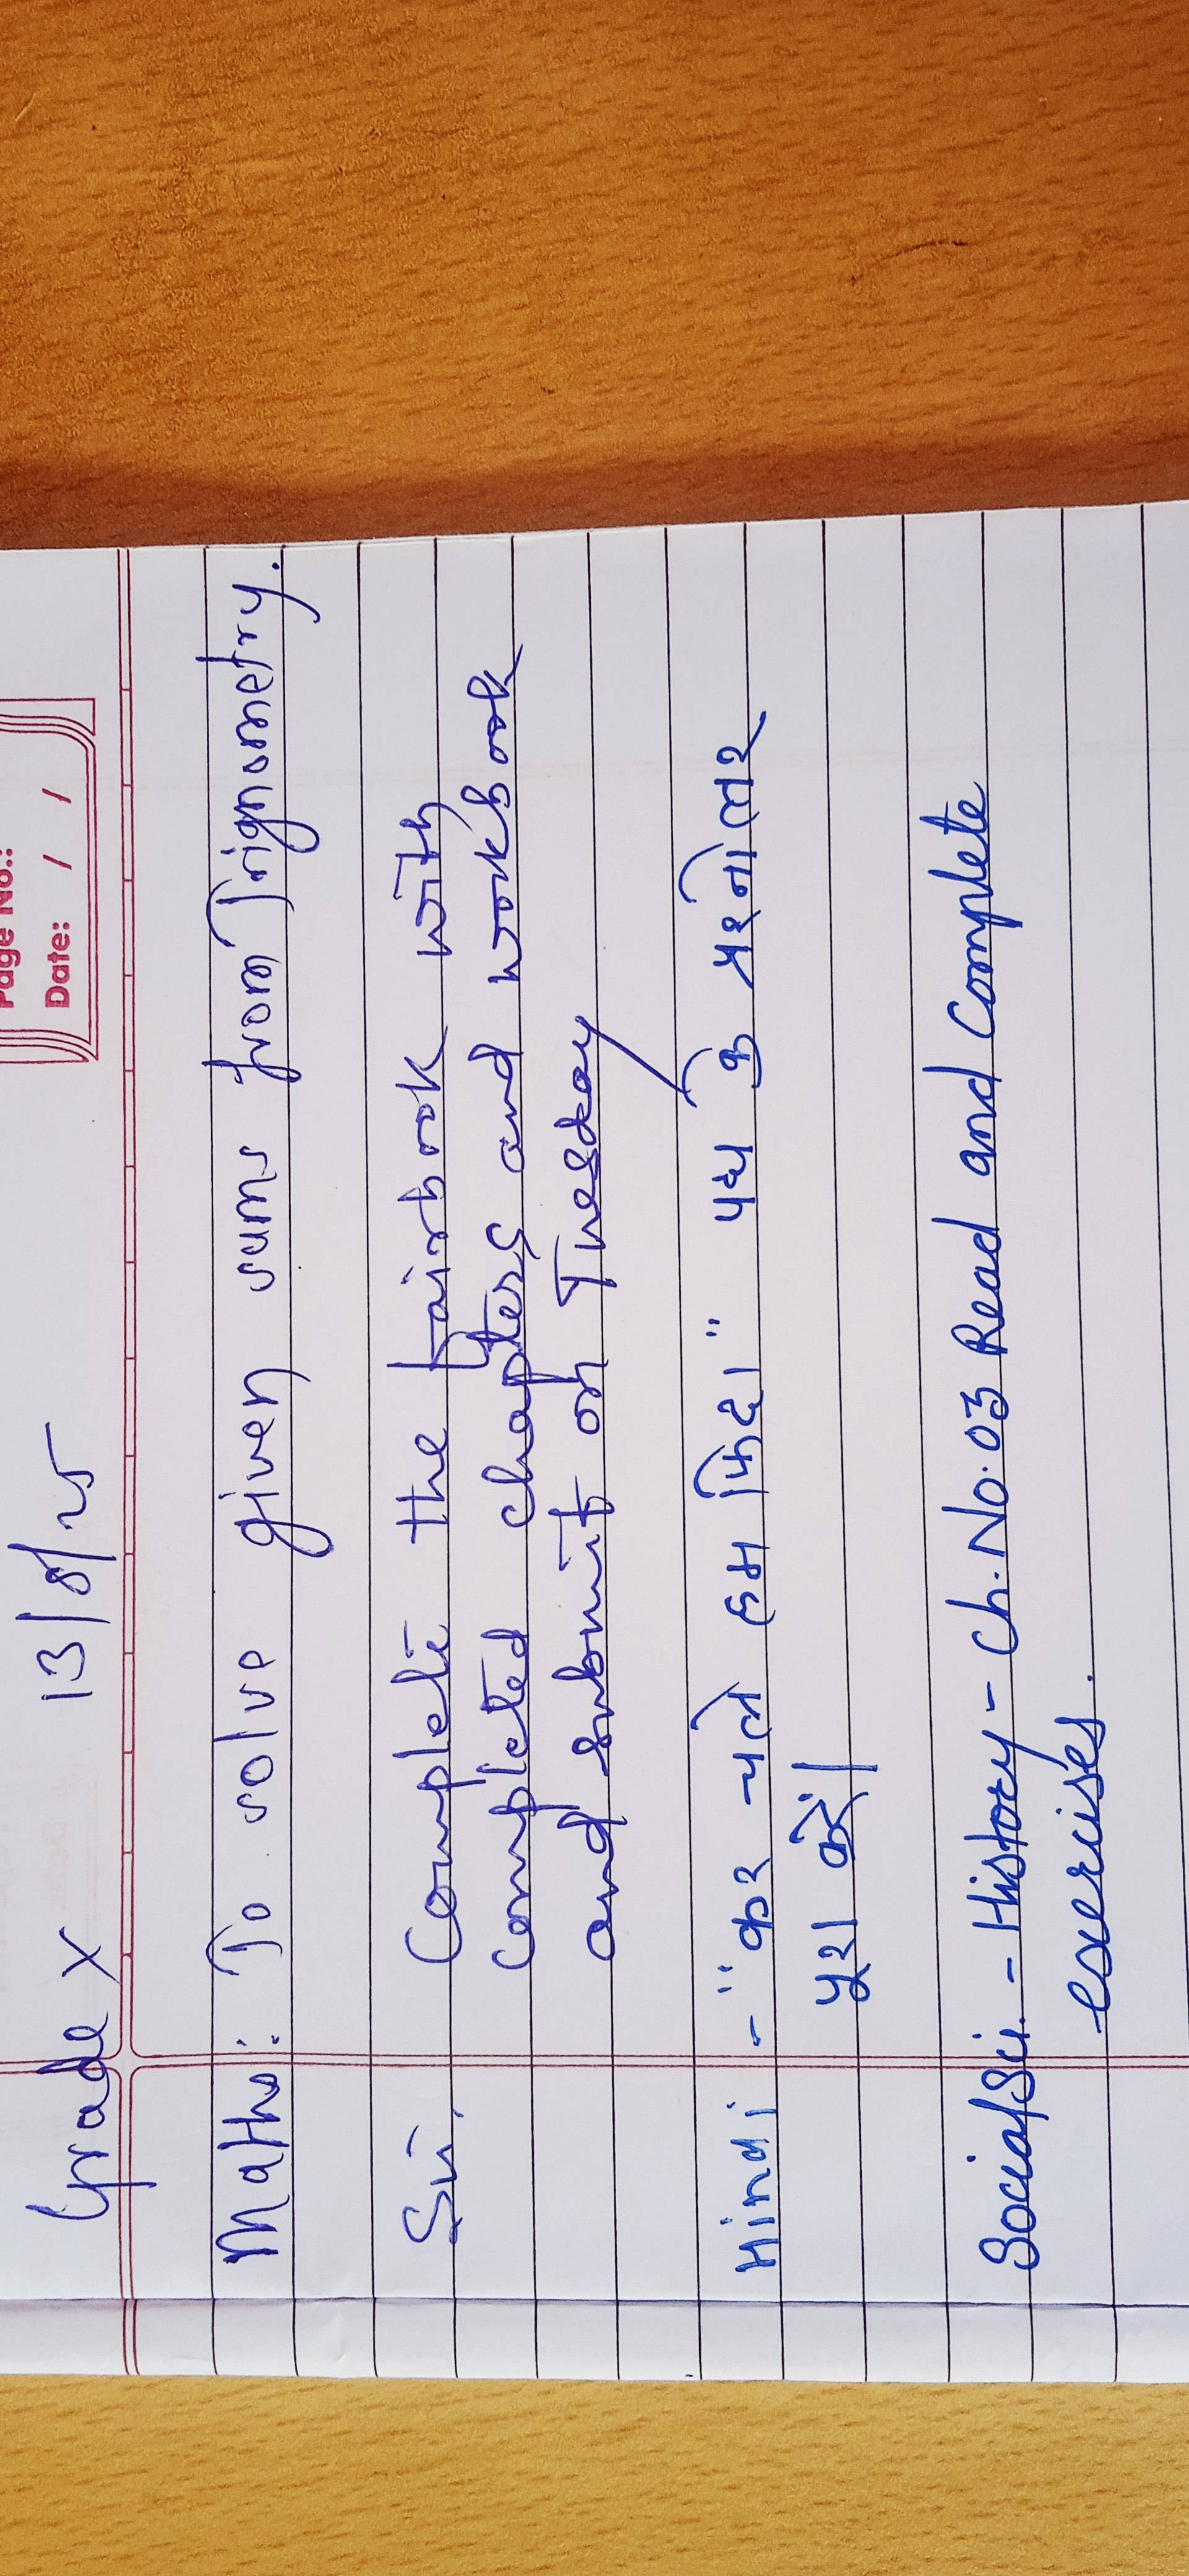 Page No.:
Date: / /
Grade X 13/8/25
Maths: To solve given sums from Trignometry.
Sci. Complete the fairbook with
completed chapters and workbook
and submit on Tuesday
Hindi - "कर चले हम फिदा" पद्य के प्रश्नोत्तर
पूरा करें।
Social Sci. - History - Ch. No. 03 Read and Complete
exercises.